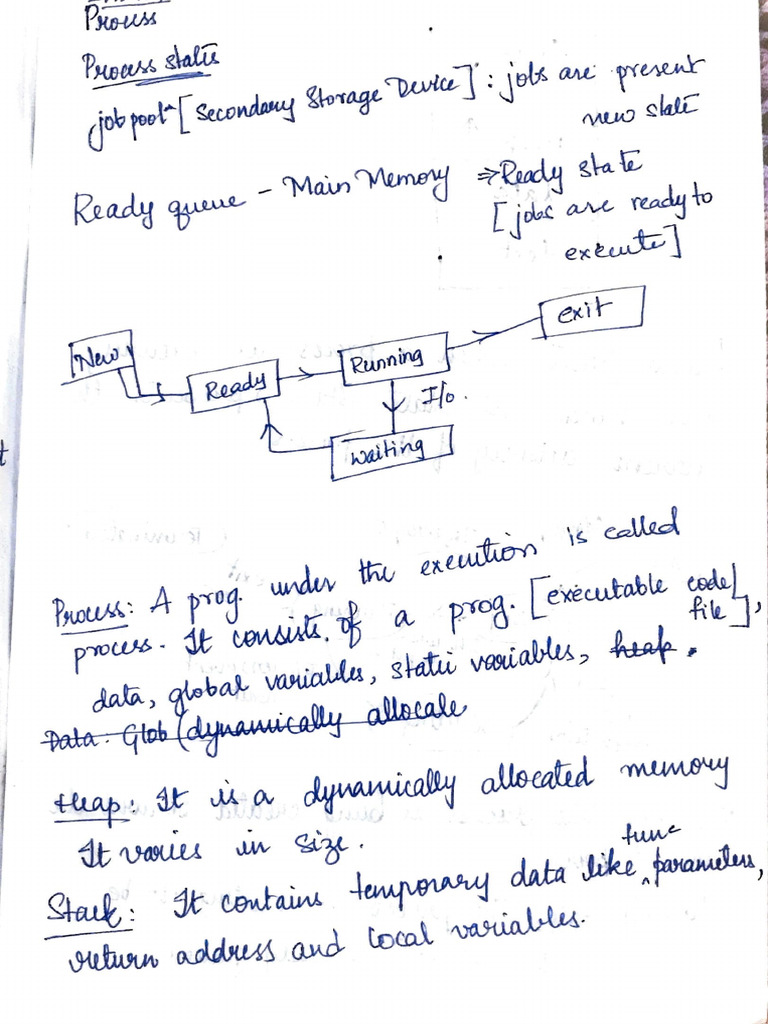 Process
Process States
job pool - [Secondary Storage Device] : jobs are present
new state
Ready queue - Main Memory ⇒ Ready state
[jobs are ready to
execute]
exit
New
Running
Ready
I/o.
Waiting
Process: A prog. under the execution is called
process. It consists of a prog. [executable code/
file],
data, global variables, static variables, heap.
Data: Glob (dynamically allocate
Heap: It is a dynamically allocated memory
It varies in size.
func
Stack: It contains temporary data like parameters,
return address and local variables.